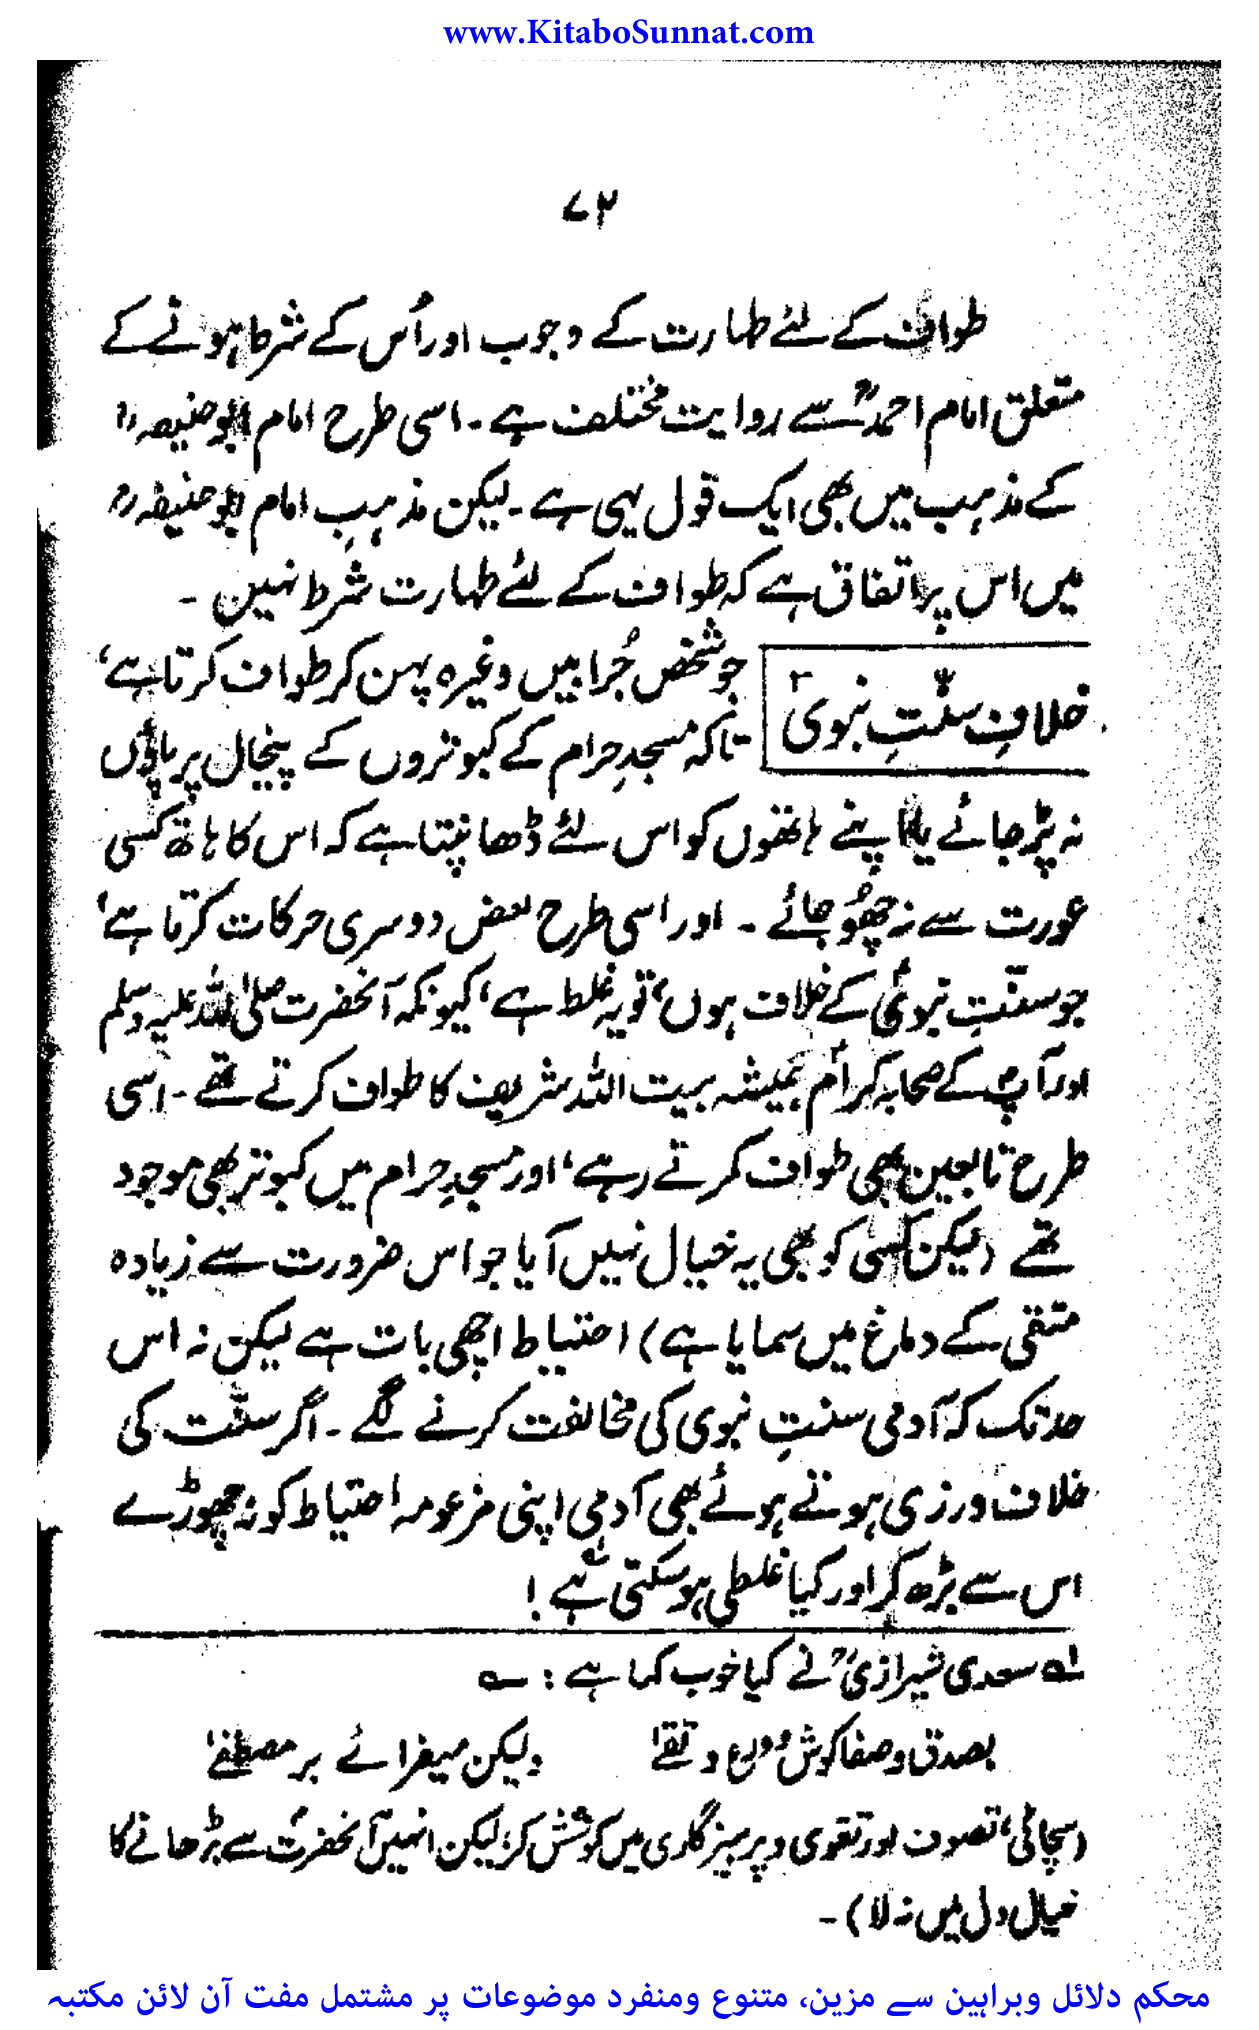 www.KitaboSunnat.com
۷۲
طواف کے لئے طہارت کے وجوب اور اُس کے شرط ہونے کے
متعلق امام احمدؒ سے روایت مختلف ہے۔ اسی طرح امام ابوحنیفہ رح
کے مذہب میں بھی ایک قول یہی ہے۔ لیکن مذہبِ امام ابوحنیفہ رح
میں اس پر اتفاق ہے کہ طواف کے لئے طہارت شرط نہیں ۔
خلافِ سنّتِ نبوی
جو شخص جُرابیں وغیرہ پہن کر طواف کرتا ہے،
تاکہ مسجدِ حرام کے کبوتروں کے پنجال پر پاؤں
نہ پڑ جائے یا اپنے ہاتھوں کو اس لئے ڈھانپتا ہے کہ اس کا ہاتھ کسی
عورت سے نہ چھُو جائے ۔ اور اسی طرح بعض دوسری حرکات کرتا ہے،
جو سنّتِ نبویؐ کے خلاف ہوں، تو یہ غلط ہے، کیونکہ آنحضرت صلی اللہ علیہ وسلم
اور آپؐ کے صحابہ کرامؓ ہمیشہ بیت اللہ شریف کا طواف کرتے تھے ۔ اسی
طرح تابعین بھی طواف کرتے رہے، اور مسجدِ حرام میں کبوتر بھی موجود
تھے (لیکن کسی کو بھی یہ خیال نہیں آیا جو اس ضرورت سے زیادہ
متقی کے دماغ میں سمایا ہے) احتیاط اچھی بات ہے لیکن نہ اس
حد تک کہ آدمی سنتِ نبوی کی مخالفت کرنے لگے ۔ اگر سنّت کی
خلاف ورزی ہوتے ہوئے بھی آدمی اپنی مزعومہ احتیاط کو نہ چھوڑے
اس سے بڑھ کر اور کیا غلطی ہو سکتی ہے لہ !
لہ سعدی شیرازیؒ نے کیا خوب کہا ہے : ؎
بصدق و صفا کوش و ورع و تقےٰ ولیکن میفزائے بر مصطفےٰ
(سچائی، تصوف اور تقوی و پرہیزگاری میں کوشش کر، لیکن انہیں آنحضرتؐ سے بڑھانے کا
خیال دل میں نہ لا) ۔
محکم دلائل وبراہین سے مزین، متنوع ومنفرد موضوعات پر مشتمل مفت آن لائن مکتبہ